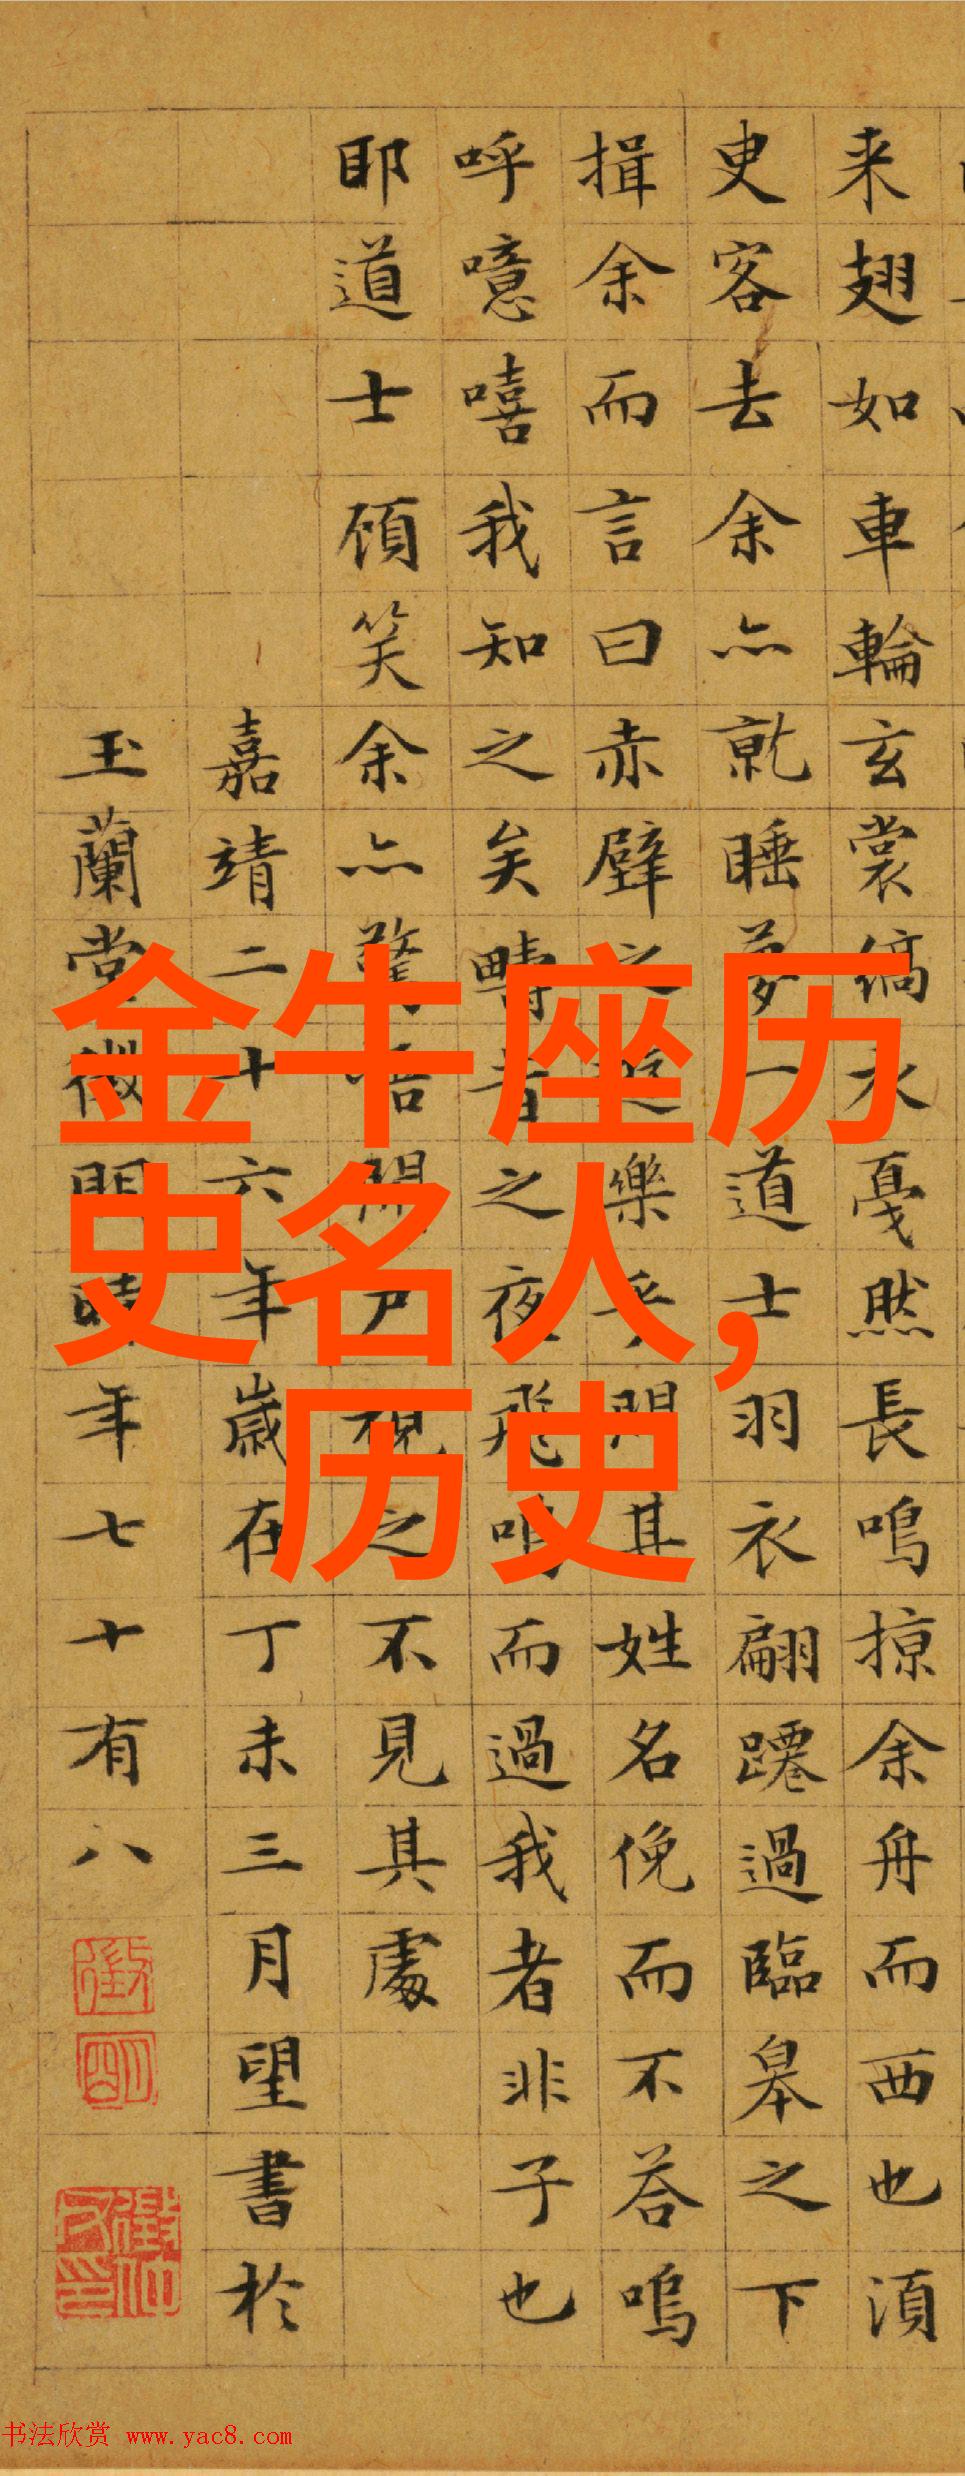 来翅如車輪玄裳縞衣戞然長鳴掠余舟而西也須
臾客去余亦就睡夢一道士羽衣翩躚過臨皋之下
揖余而言曰赤壁之遊樂乎問其姓名俛而不荅嗚
呼噫嘻我知之矣疇昔之夜飛鳴而過我者非子也
耶道士頋笑余亦驚悟開戶視之不見其處
嘉靖二十六年歲在丁未三月望書於
玉蘭堂徵明時年七十有八
徵
明
金牛座历
史名人,
历史
书法欣赏 www.yac8.com